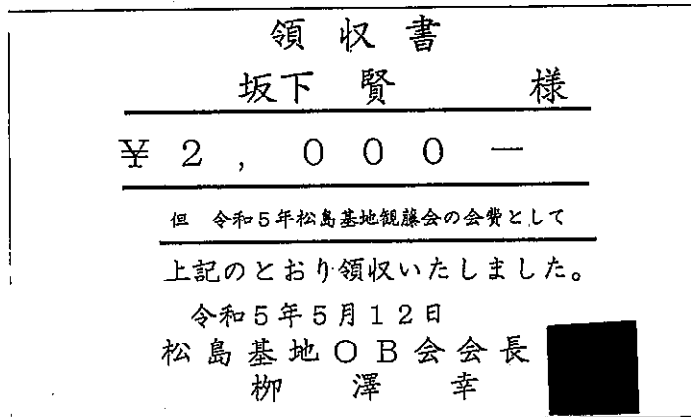 領収書
坂下 賢 様
¥2,000－
但 令和5年松島基地観藤会の会費として
上記のとおり領収いたしました。
令和5年5月12日
松島基地OB会会長
柳澤幸